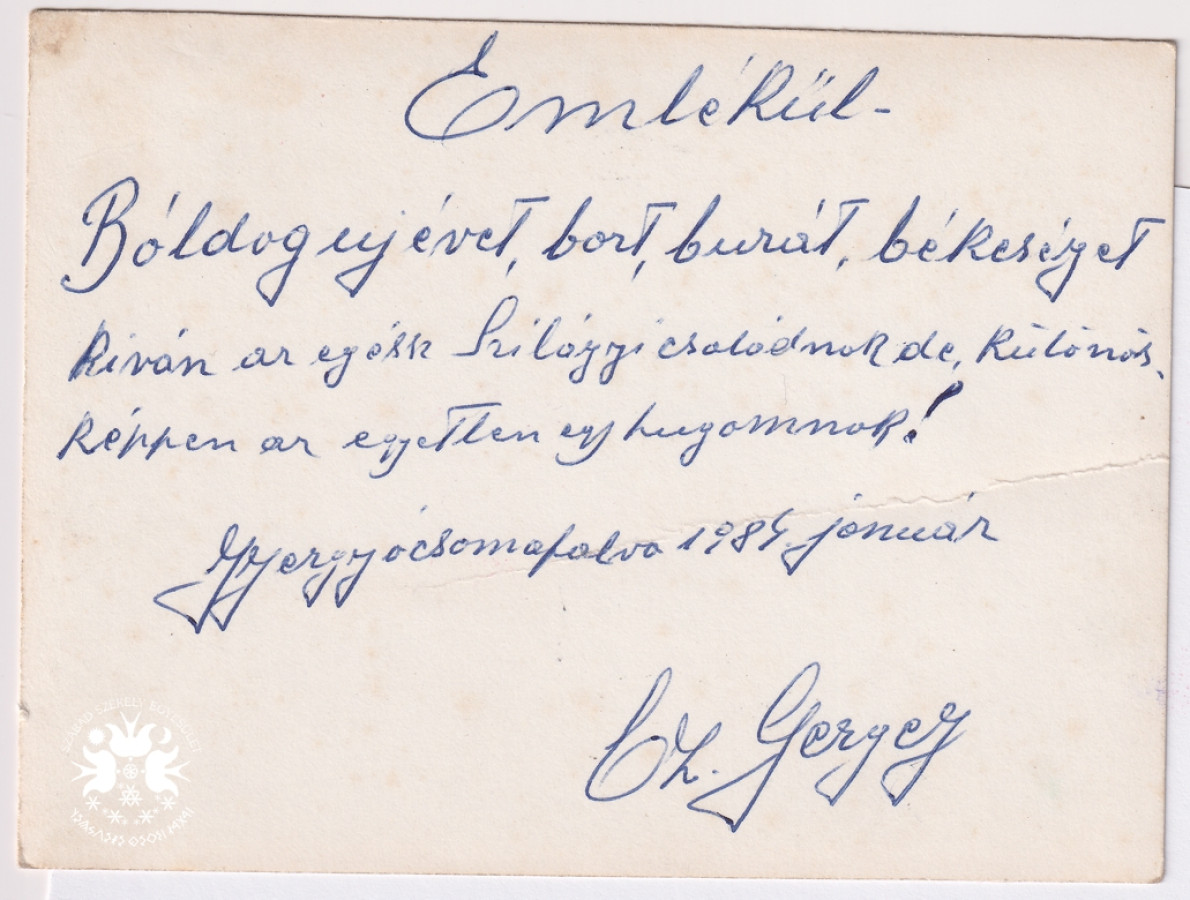 Emlékül-
Bóldog ujévet, bort, burát, békeséget
kiván az egész Szilágyi családnak de, különös.
képpen az egyetlen egy hugomnak!
Gyergyócsomafalva 198 január
Gergey
SZABAD SZÉKELY EGYESÜLET